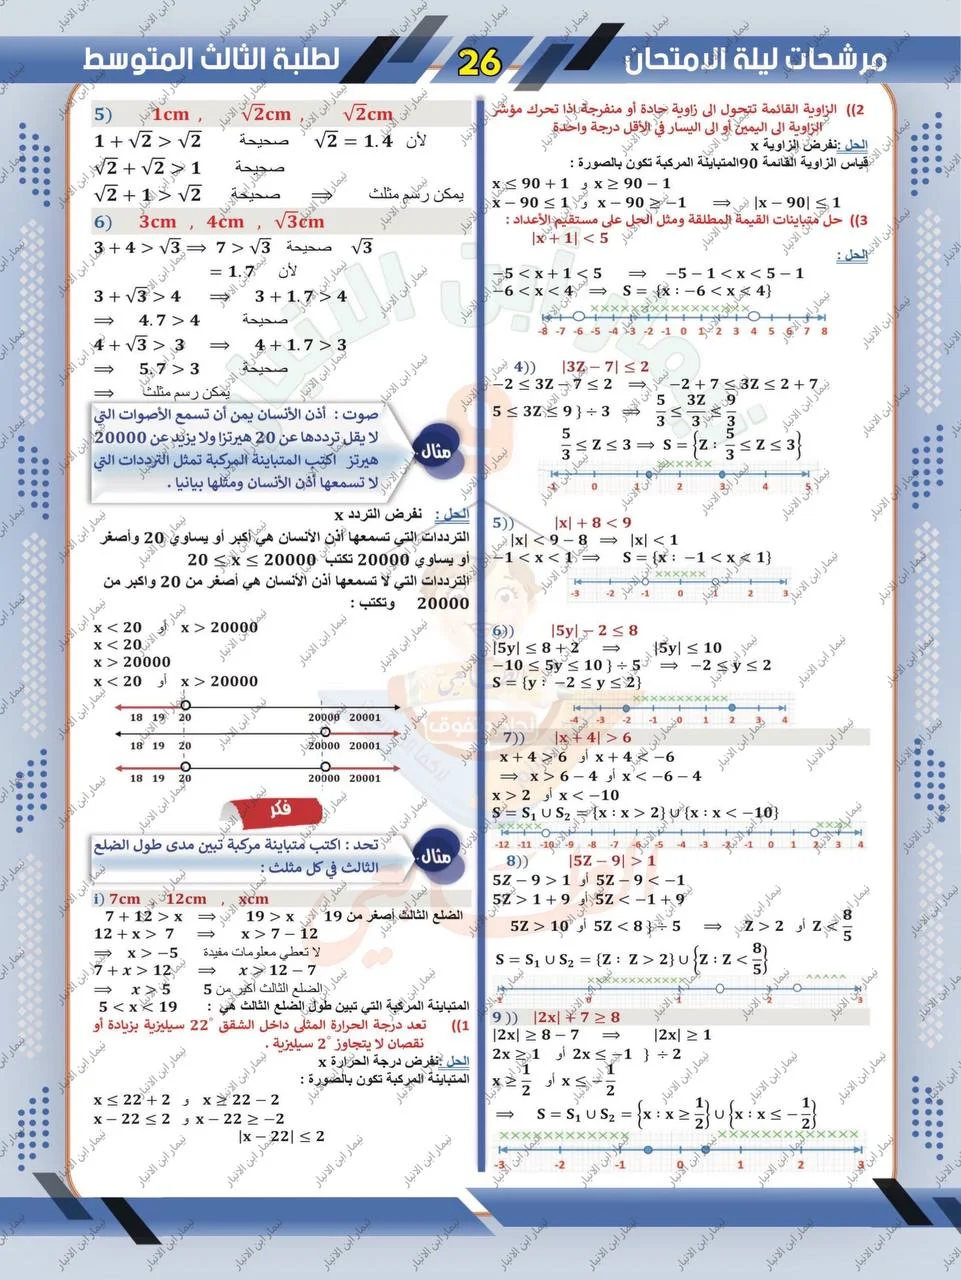 مرشحات ليلة الامتحان
26
لطلبة الثالث المتوسط
2)) الزاوية القائمة تتحول الى زاوية حادة أو منفرجة إذا تحرك مؤشر
الزاوية الى اليمين أو الى اليسار في الأقل درجة واحدة
الحل : نفرض الزاوية x
قياس الزاوية القائمة 90المتباينة المركبة تكون بالصورة :
x ≤ 90 + 1 و x ≥ 90 − 1
x − 90 ≤ 1 و x − 90 ≥ −1 ⟹ |x − 90| ≤ 1
3)) حل متباينات القيمة المطلقة ومثل الحل على مستقيم الأعداد :
|x + 1| < 5
الحل :
−5 < x + 1 < 5 ⟹ −5 − 1 < x < 5 − 1
−6 < x < 4 ⟹ S = {x : −6 < x < 4}
-8 -7 -6 -5 -4 -3 -2 -1 0 1 2 3 4 5 6 7 8
4)) |3Z − 7| ≤ 2
−2 ≤ 3Z − 7 ≤ 2 ⟹ −2 + 7 ≤ 3Z ≤ 2 + 7
5 ≤ 3Z ≤ 9 } ÷ 3 ⟹ 5/3 ≤ 3Z/3 ≤ 9/3
5/3 ≤ Z ≤ 3 ⟹ S = {Z : 5/3 ≤ Z ≤ 3}
-1 0 1 2 3 4 5
5)) |x| + 8 < 9
|x| < 9 − 8 ⟹ |x| < 1
−1 < x < 1 ⟹ S = {x : −1 < x < 1}
-3 -2 -1 0 1 2 3
6)) |5y| − 2 ≤ 8
|5y| ≤ 8 + 2 ⟹ |5y| ≤ 10
−10 ≤ 5y ≤ 10 } ÷ 5 ⟹ −2 ≤ y ≤ 2
S = {y : −2 ≤ y ≤ 2}
-4 -3 -2 -1 0 1 2 3 4
7)) |x + 4| > 6
x + 4 > 6 أو x + 4 < −6
⟹ x > 6 − 4 أو x < −6 − 4
x > 2 أو x < −10
S = S₁ ∪ S₂ = {x : x > 2} ∪ {x : x < −10}
-12 -11 -10 -9 -8 -7 -6 -5 -4 -3 -2 -1 0 1 2 3 4
8)) |5Z − 9| > 1
5Z − 9 > 1 أو 5Z − 9 < −1
5Z > 1 + 9 أو 5Z < −1 + 9
5Z > 10 أو 5Z < 8 } ÷ 5 ⟹ Z > 2 أو Z < 8/5
S = S₁ ∪ S₂ = {Z : Z > 2} ∪ {Z : Z < 8/5}
-1 0 1 2 3
9 )) |2x| + 7 ≥ 8
|2x| ≥ 8 − 7 ⟹ |2x| ≥ 1
2x ≥ 1 أو 2x ≤ −1 } ÷ 2
x ≥ 1/2 أو x ≤ −1/2
⟹ S = S₁ ∪ S₂ = {x : x ≥ 1/2} ∪ {x : x ≤ −1/2}
-3 -2 -1 0 1 2 3
5) 1cm , √2cm , √2cm
1 + √2 > √2 صحيحة لأن √2 = 1.4
√2 + √2 > 1 صحيحة
√2 + 1 > √2 صحيحة ⟹ يمكن رسم مثلث
6) 3cm , 4cm , √3cm
3 + 4 > √3 ⟹ 7 > √3 صحيحة √3
= 1.7 لأن
3 + √3 > 4 ⟹ 3 + 1.7 > 4
⟹ 4.7 > 4 صحيحة
4 + √3 > 3 ⟹ 4 + 1.7 > 3
⟹ 5.7 > 3 صحيحة
⟹ يمكن رسم مثلث
مثال
صوت : أذن الأنسان يمن أن تسمع الأصوات التي
لا يقل ترددها عن 20 هيرتزا ولا يزيد عن 20000
هيرتز اكتب المتباينة المركبة تمثل الترددات التي
لا تسمعها أذن الأنسان ومثلها بيانيا .
الحل : نفرض التردد x
الترددات التي تسمعها أذن الأنسان هي أكبر أو يساوي 20 وأصغر
أو يساوي 20000 تكتب 20 ≤ x ≤ 20000
الترددات التي لا تسمعها أذن الأنسان هي أصغر من 20 واكبر من
20000 وتكتب :
x < 20 أو x > 20000
x < 20
x > 20000
x < 20 أو x > 20000
18 19 20 20000 20001
18 19 20 20000 20001
18 19 20 20000 20001
فكر
مثال
تحد : اكتب متباينة مركبة تبين مدى طول الضلع
الثالث في كل مثلث :
i) 7cm , 12cm , xcm
7 + 12 > x ⟹ 19 > x الضلع الثالث أصغر من 19
12 + x > 7 ⟹ x > 7 − 12
⟹ x > −5 لا تعطي معلومات مفيدة
7 + x > 12 ⟹ x > 12 − 7
⟹ x > 5 الضلع الثالث أكبر من 5
المتباينة المركبة التي تبين طول الضلع الثالث هي : 5 < x < 19
1)) تعد درجة الحرارة المثلى داخل الشقق 22° سيليزية بزيادة أو
نقصان لا يتجاوز 2° سيليزية .
الحل : نفرض درجة الحرارة x
المتباينة المركبة تكون بالصورة :
x ≤ 22 + 2 و x ≥ 22 − 2
x − 22 ≤ 2 و x − 22 ≥ −2
|x − 22| ≤ 2